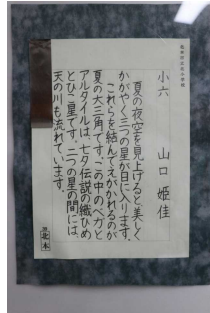 小六　山口　姫佳
夏の夜空を見上げると、美しく
かがやく三つの星が目に入ります。
これらを結んでえがかれるのが
夏の大三角です。この中のベガと
アルタイルは、七夕伝説の織りひめ
とひこ星です。二つの星の間には、
天の川も流れています。